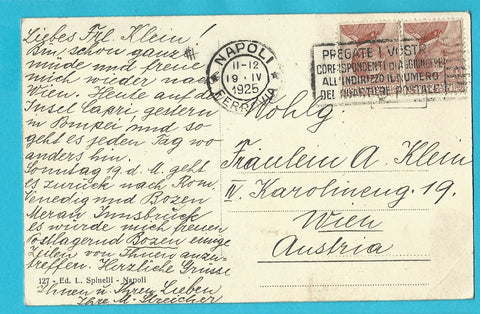 Liebes Frl. Klein!
Bin schon ganz
müde und freue
mich wieder nach
Wien. Heute auf der
Insel Capri, gestern
in Pompei und so
geht es jeden Tag wo
anders hin.
Sonntag 19. d. M. geht
es zurück nach Rom,
Venedig und Bozen
Meran Innsbruck
es würde mich freuen
Postlagernd Bozen einige
Zeilen von Ihnen anzu-
treffen. Herzliche Grüsse
127 - Ed. L. Spinelli - Napoli
Ihnen u. Ihren Lieben
Ihre M. Streicher
NAPOLI
11-12
19 · IV
1925
FERROVIA
PREGATE I VOSTRI
CORRISPONDENTI DI AGGIUNGERE
ALL'INDIRIZZO IL NUMERO
DEL QUARTIERE POSTALE
Wohlg.
Fräulein A. Klein
IV. Karolineng. 19.
Wien
Austria